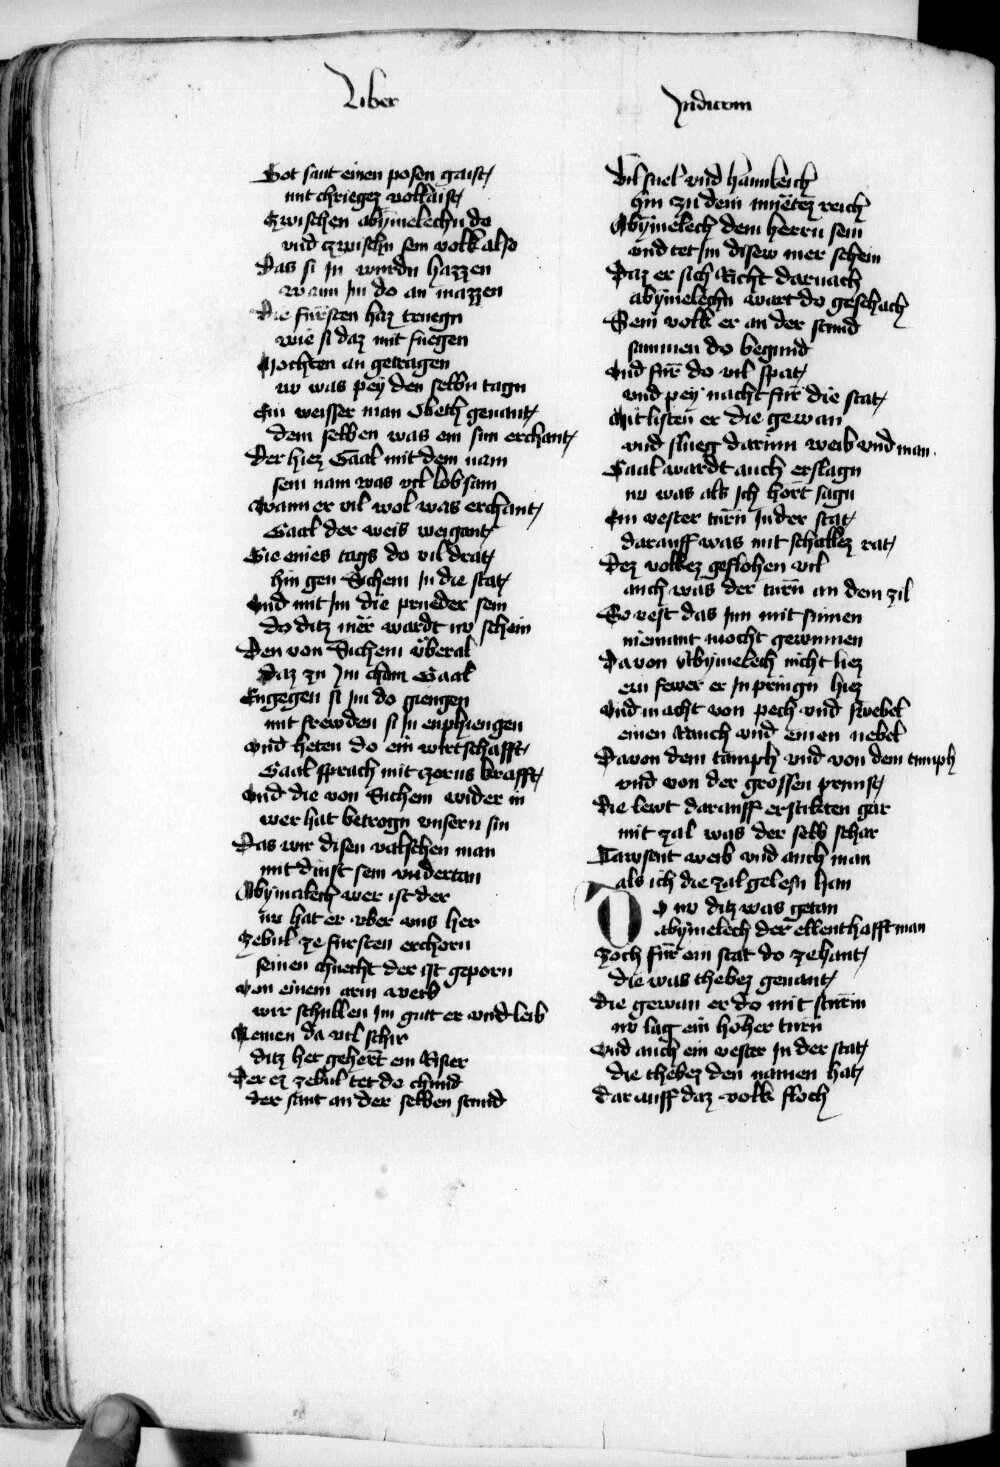 Liber
Judicum
Got sant einen posen gaist
mit chrieges vollaist
Zwischen abymelechn do
vnd zwischn sein volk also
Das si in wurdn hazzen
wann im do an mazzen
Die fürsten haz truegn
wie si daz mit fuegen
Mochten an getragen
nv was pey den selbn tagn
Ein weisser man Obeth genant
dem selben was ein sun erchant
Der hiez Gaal mit dem nam
sein nam was vil lobsam
Wann er vil wol was erchant
Gaal der weis weigant
Gie eines tags do vil drat
hin gen Sichem in die stat
Vnd mit im die prueder sein
do ditz mër wardt nv schein
Den von Sichem vberal
daz zu Im cham Gaal
Engegen si im do giengen
mit frewden si in enphiengen
Vnd heten do ein wirtschafft
Gaal sprach mit zorns krafft
Vnd die von Sichem wider in
wer hat betrogn vnsern sin
Das wir disen valschen man
mit dinst sein vndertan
Abymalech wer ist der
nv hat er vber vns her
Zebul ze fursten erchorn
seinen chnecht der ist geporn
Von einem arm weib
wir schullen im gutt er vnd leib
Nemen da vil schir
ditz her gehert ein Riter
Der ez zebul tet do chund
der sant an der selben stund
Vil snel vnd hamleich
hin zu dem
reich
Abymelech dem herrn sein
vnd tet im disew mer schein
Daz er sich Richt darnach
abymelechn wart do geschach
Sein volk er an der stund
sammen do begund
Vnd für do vil spat
vnd pey nacht für die stat
Mit listen er die gewan
vnd slueg darinn weib vnd man
Gaal wardt auch erslagn
nv was als ich hört sagn
Ein vester turn in der stat
darauff was mit schalles rat
Dez volkez geflohen vil
auch was der turn an dem zil
So vest das inn mit sinnen
niemant mocht gewinnen
Davon Abymelech nicht liez
ein fewer er in pringn hiez
Vnd macht von pech vnd swebel
einen Rauch vnd einen nebel
Davon dem tamph vnd von dem timph
vnd von der grossen prunst
Die lewt darauff erstikten gar
mit zal was der selb schar
Tawsent weib vnd auch man
als ich die zal gelesn han
Do nv ditz was getan
abymelech der ellenthafft man
Zoch für ein stat do zehant
die was thebez genant
Die gewan er do mit sturm
nv lag ein hoher turn
Vnd auch ein vester in der stat
die thebez den namen hat
Darauff daz volk floch